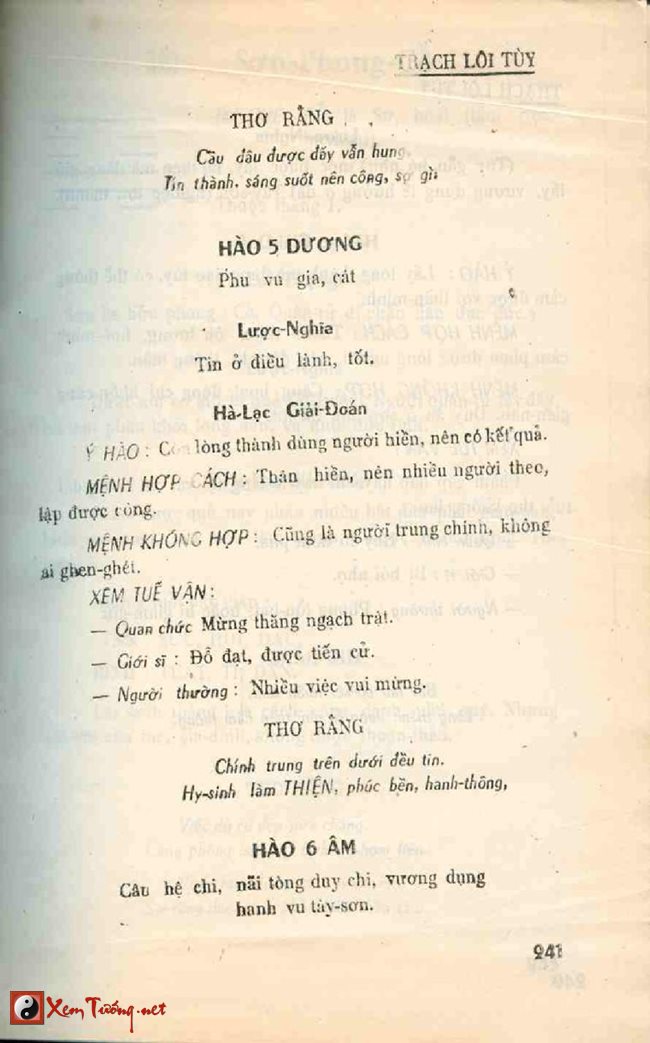 TRẠCH LÔI TÙY
THƠ RẰNG
Cầu đâu được đấy vẫn hung,
Tin thành, sáng suốt nên công, sợ gì,
HÀO 5 DƯƠNG
Phu vu gia, cát
Lược-Nghĩa
Tin ở điều lành, tốt.
Hà-Lạc Giải-Đoán
Ý HÀO : Có lòng thành dùng người hiền, nên có kết quả.
MỆNH HỢP CÁCH : Thân hiền, nên nhiều người theo,
lập được công.
MỆNH KHÔNG HỢP : Cũng là người trung chính, không
ai ghen-ghét.
XEM TUẾ VẬN :
— Quan chức Mừng thăng ngạch trật.
— Giới sĩ : Đỗ đạt, được tiến cử.
— Người thường : Nhiều việc vui mừng.
THƠ RẰNG
Chính trung trên dưới đều tin.
Hy-sinh làm THIỆN, phúc bền, hanh-thông,
HÀO 6 ÂM
Câu hệ chi, nãi tòng duy chi, vương dụng
hanh vu tây-sơn.
241
XemTướng.net